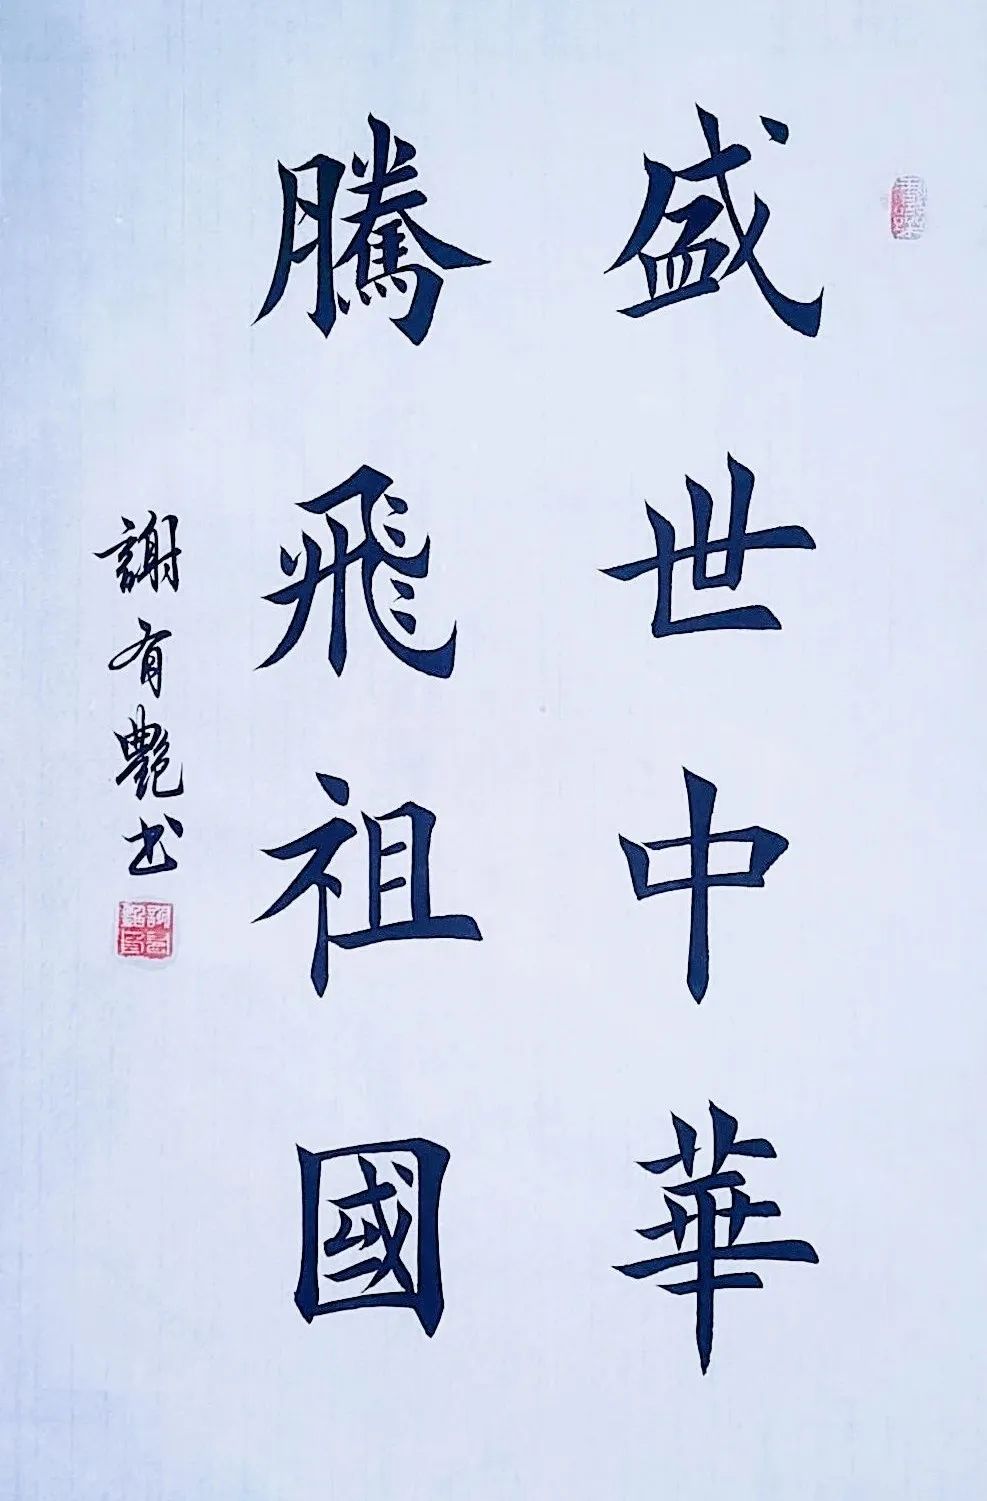 盛世中華
騰飛祖國
謝有艷书